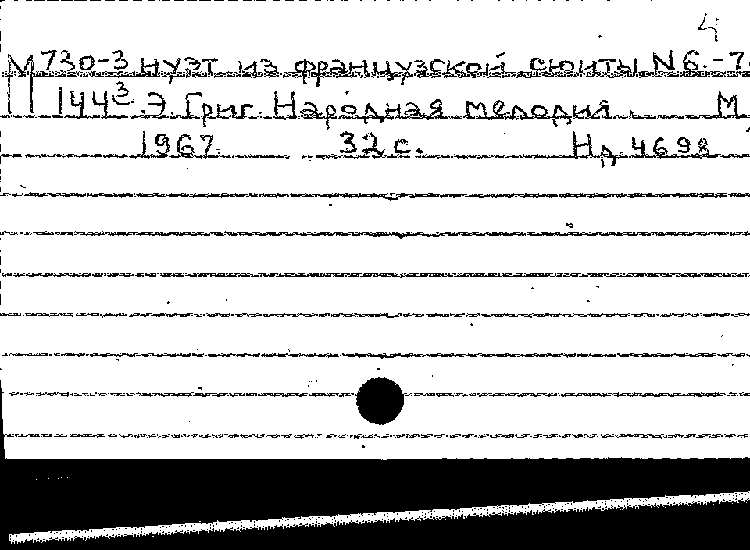 4
М 730-3 нуэт из французской сюиты N6.-7.
144³ Э. Григ. Народная мелодия. М,
1967. 32 с. Нд 4698